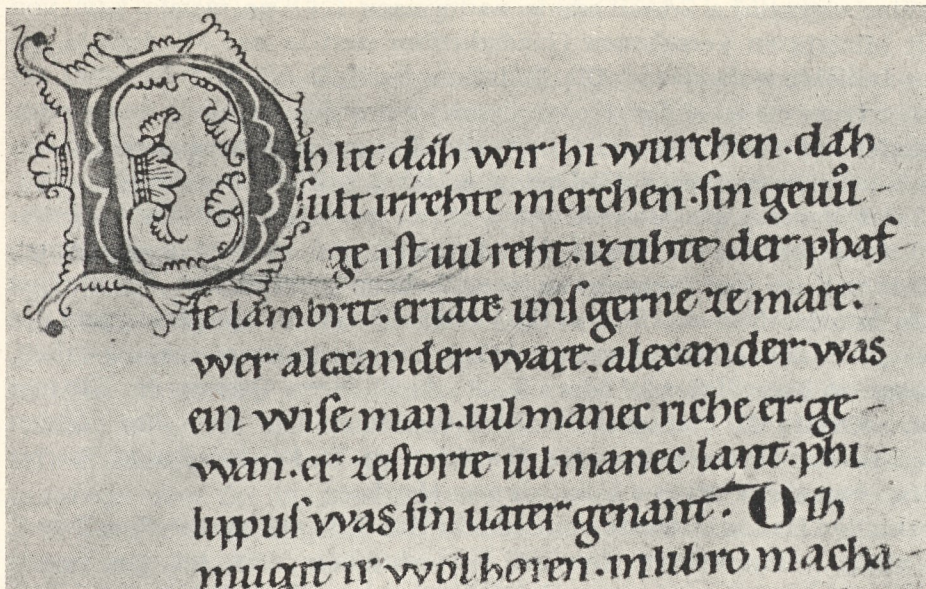 Diz lit daz wir hi wurchen. daz
ſult ir rehte merchen. ſin gevuͦ-
ge iſt uil reht. iz tihte der phaf-
fe lambret. er tate unſ gerne ze mare.
wer alexander ware. alexander was
ein wiſe man. uil manec riche er ge-
wan. er zeſtorte uil manec lant. phi-
lippuſ was ſin uater genant. Diz
mugit ir wol horen. in libro macha-